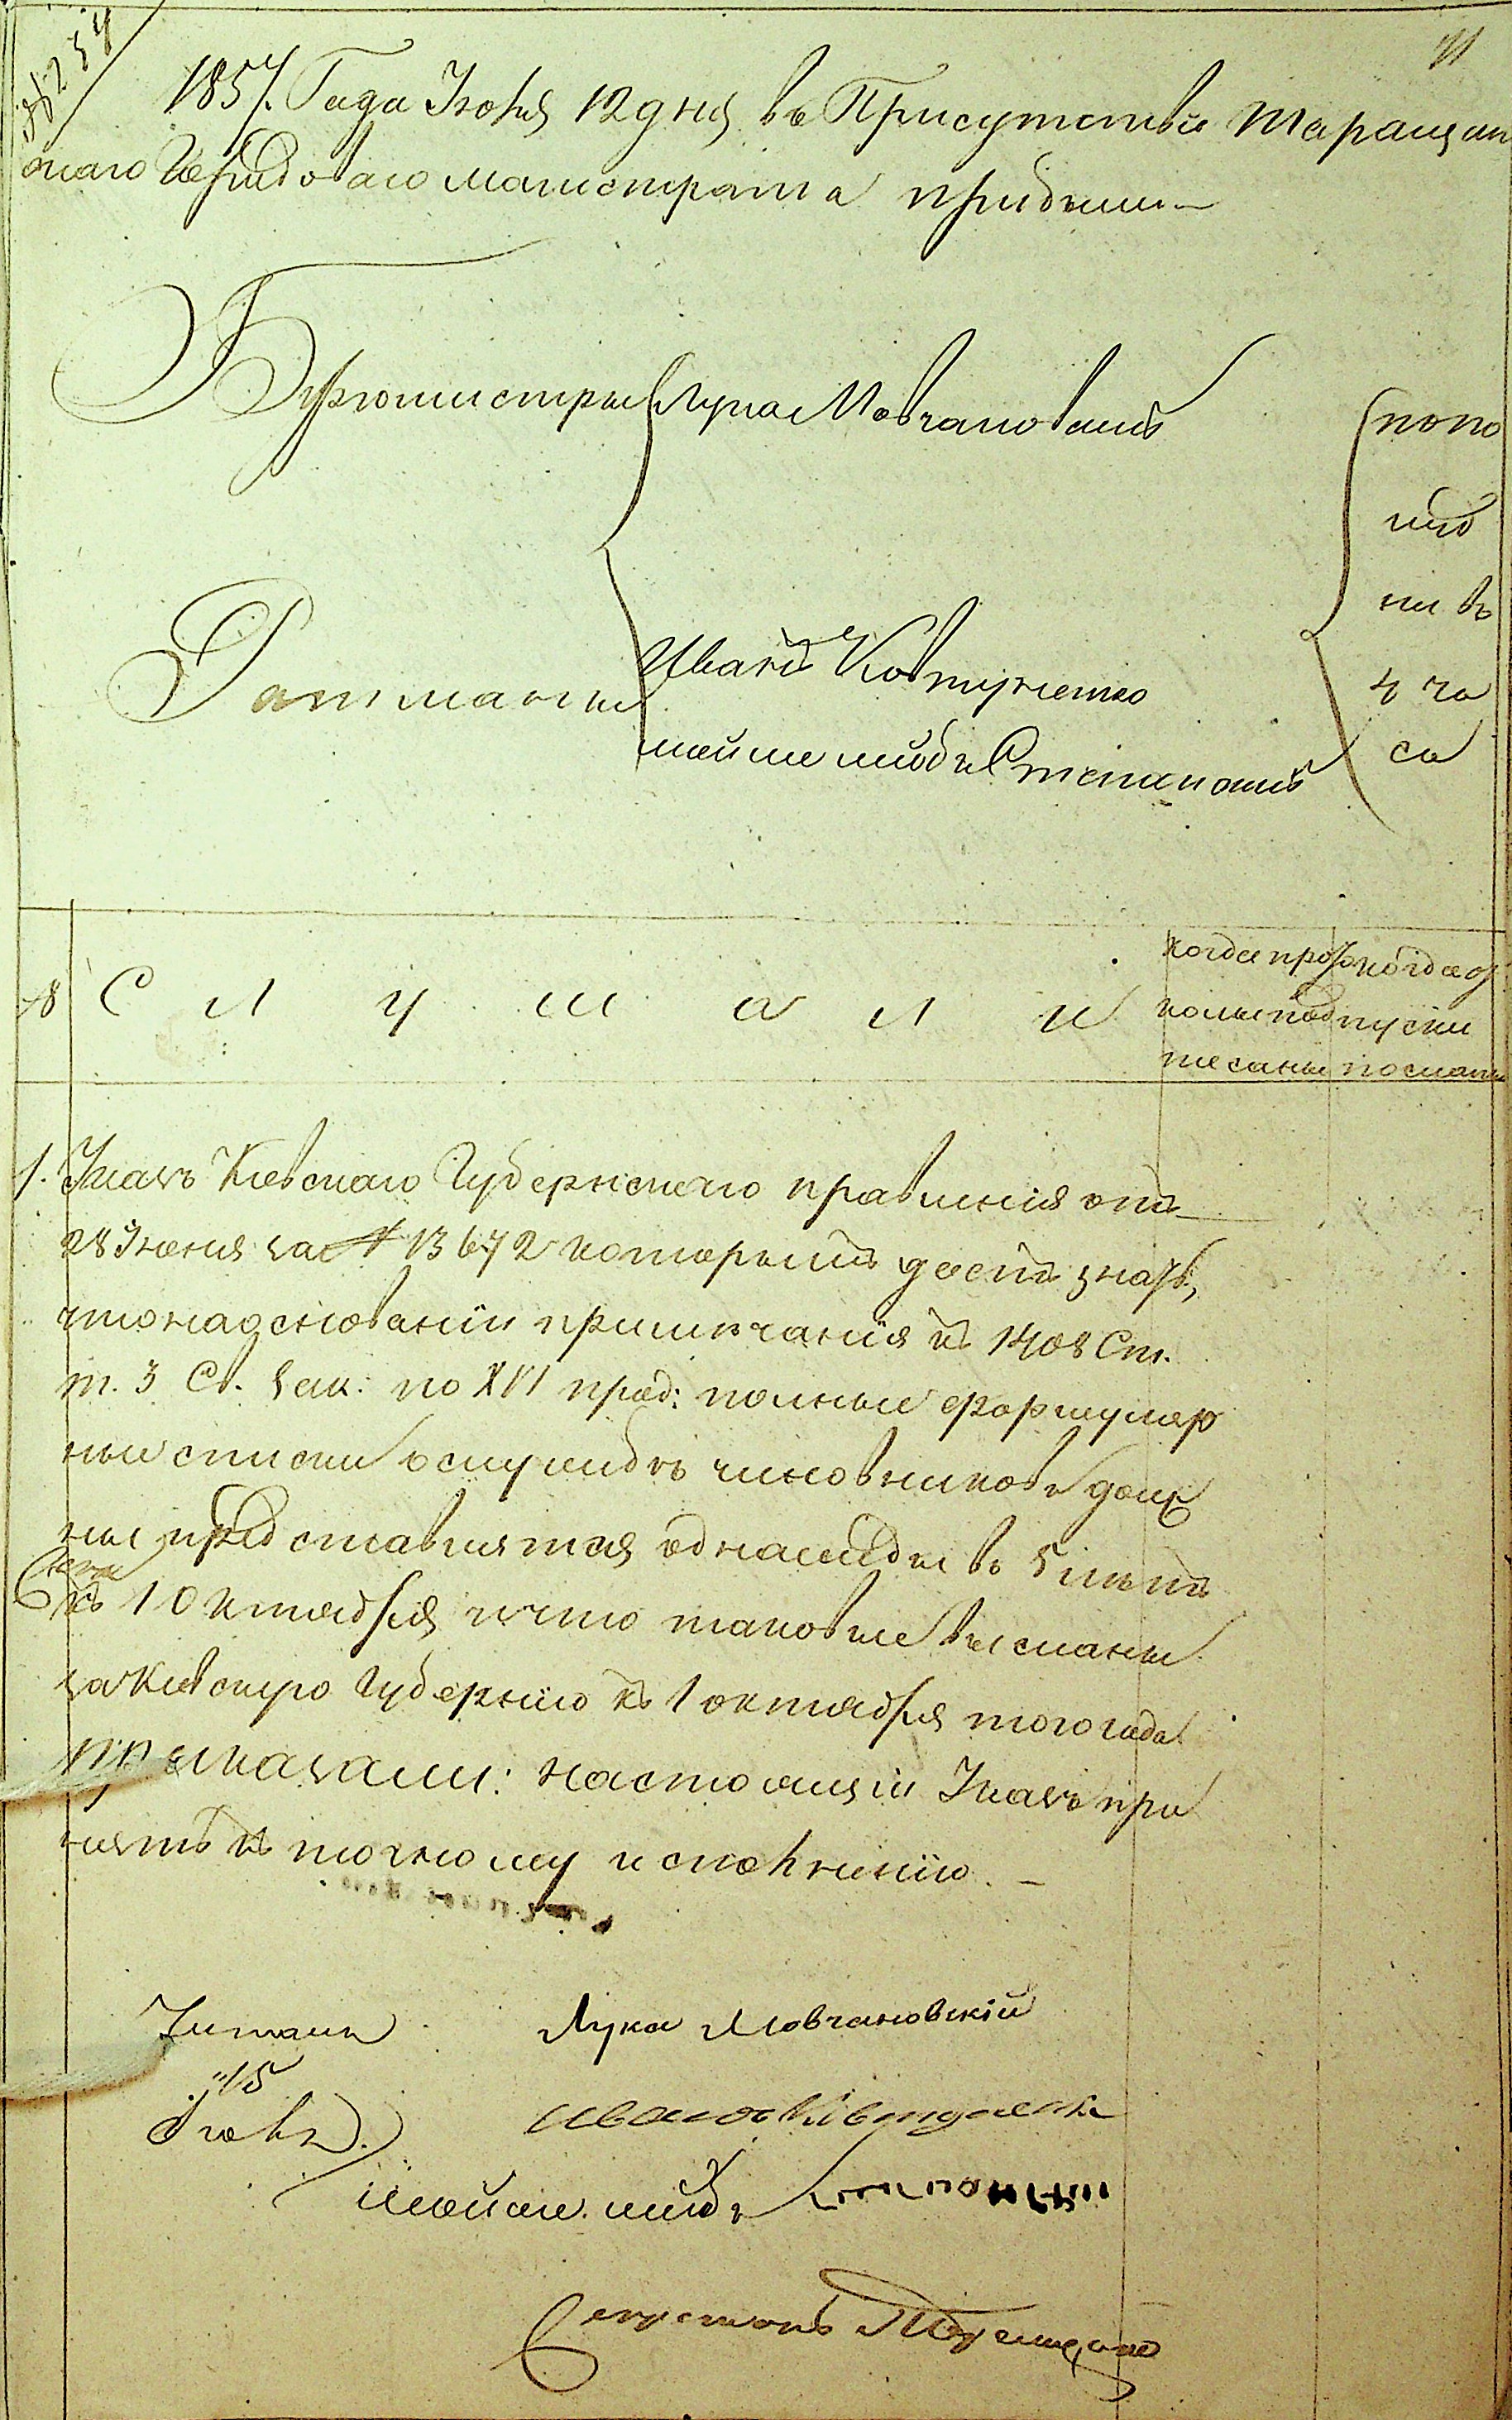 11
1857. Года Июля 12 дня въ Присутствіи Таращан
скаго Городоваго магистрата прибыли
Бургомистры Лука Мовчановскій
Иванъ Ковтуненко
Ратманы
попо
лу
дни въ
4 ча
са
С л у ш а л и
когда прото
колы под
писаны
когда от
пуски
посланы
1. Указъ Кіевскаго Губернскаго правленія отъ
28 Іюня за № 13642 которымъ даетъ знать,
что на основаніи примѣчанія къ 1408 Ст.
т. 3 Св. Зак: по XVI прод: полные формуляр
ные списки о службѣ чиновниковъ долж
ны представлятся однажды въ 5 лѣтъ
къ 1 Октября и что таковые высланы
за Кіевскую Губернію къ 1 октября того года
приказали: настоящій Указъ при
нять къ точному исполненію. –
Читали
15
Іюля
Лука Мовчановскій
Иванъ Ковтуненко